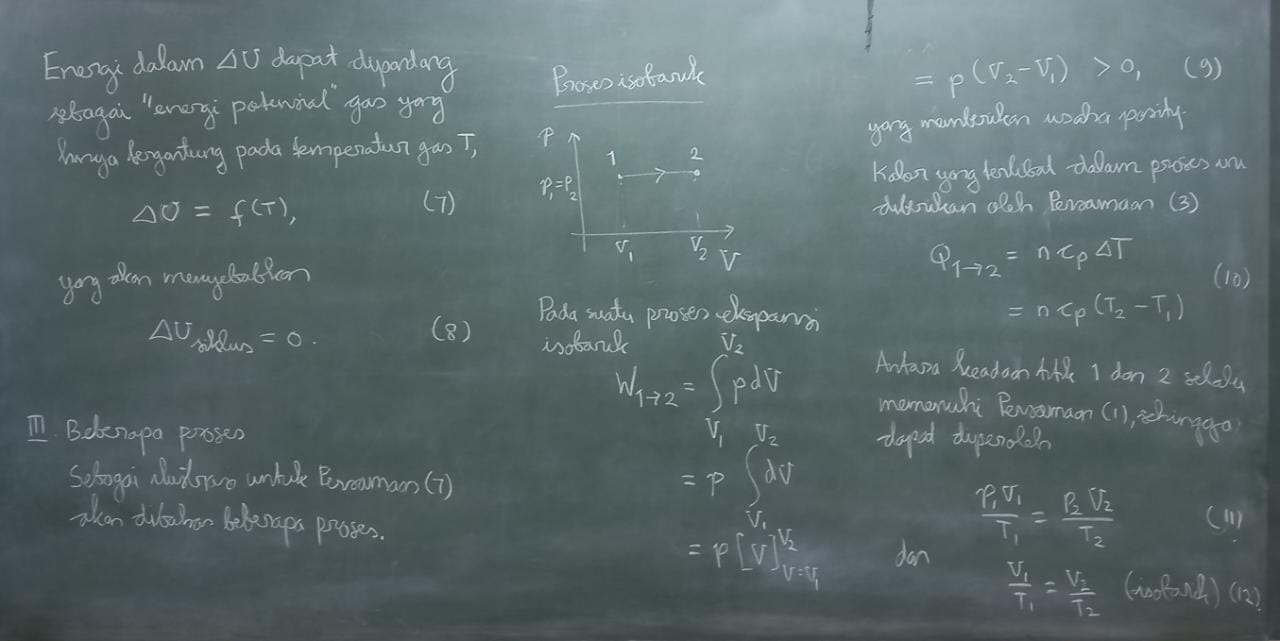 Energi dalam ΔU dapat dipandang
sebagai "energi potensial" gas yang
hanya bergantung pada temperatur gas T,
ΔU = f(T), (7)
yang akan menyebabkan
ΔU siklus = 0. (8)
III. Beberapa proses
Sebagai ilustrasi untuk Persamaan (7)
akan dibahas beberapa proses.
Proses isobarik
P
1 2
P₁=P₂
V₁ V₂ V
Pada suatu proses ekspansi
isobarik
W₁→₂ = ∫_{V₁}^{V₂} p dV
= p ∫_{V₁}^{V₂} dV
= p [V]_{V=V₁}^{V₂}
= p (V₂-V₁) > 0, (9)
yang memberikan usaha positif.
Kalor yang terlibat dalam proses ini
diberikan oleh Persamaan (3)
Q₁→₂ = n c_p ΔT
= n c_p (T₂-T₁) (10)
Antara keadaan titik 1 dan 2 selalu
memenuhi Persamaan (1), sehingga
dapat diperoleh
P₁V₁/T₁ = P₂V₂/T₂ (11)
dan
V₁/T₁ = V₂/T₂ (isobarik) (12)